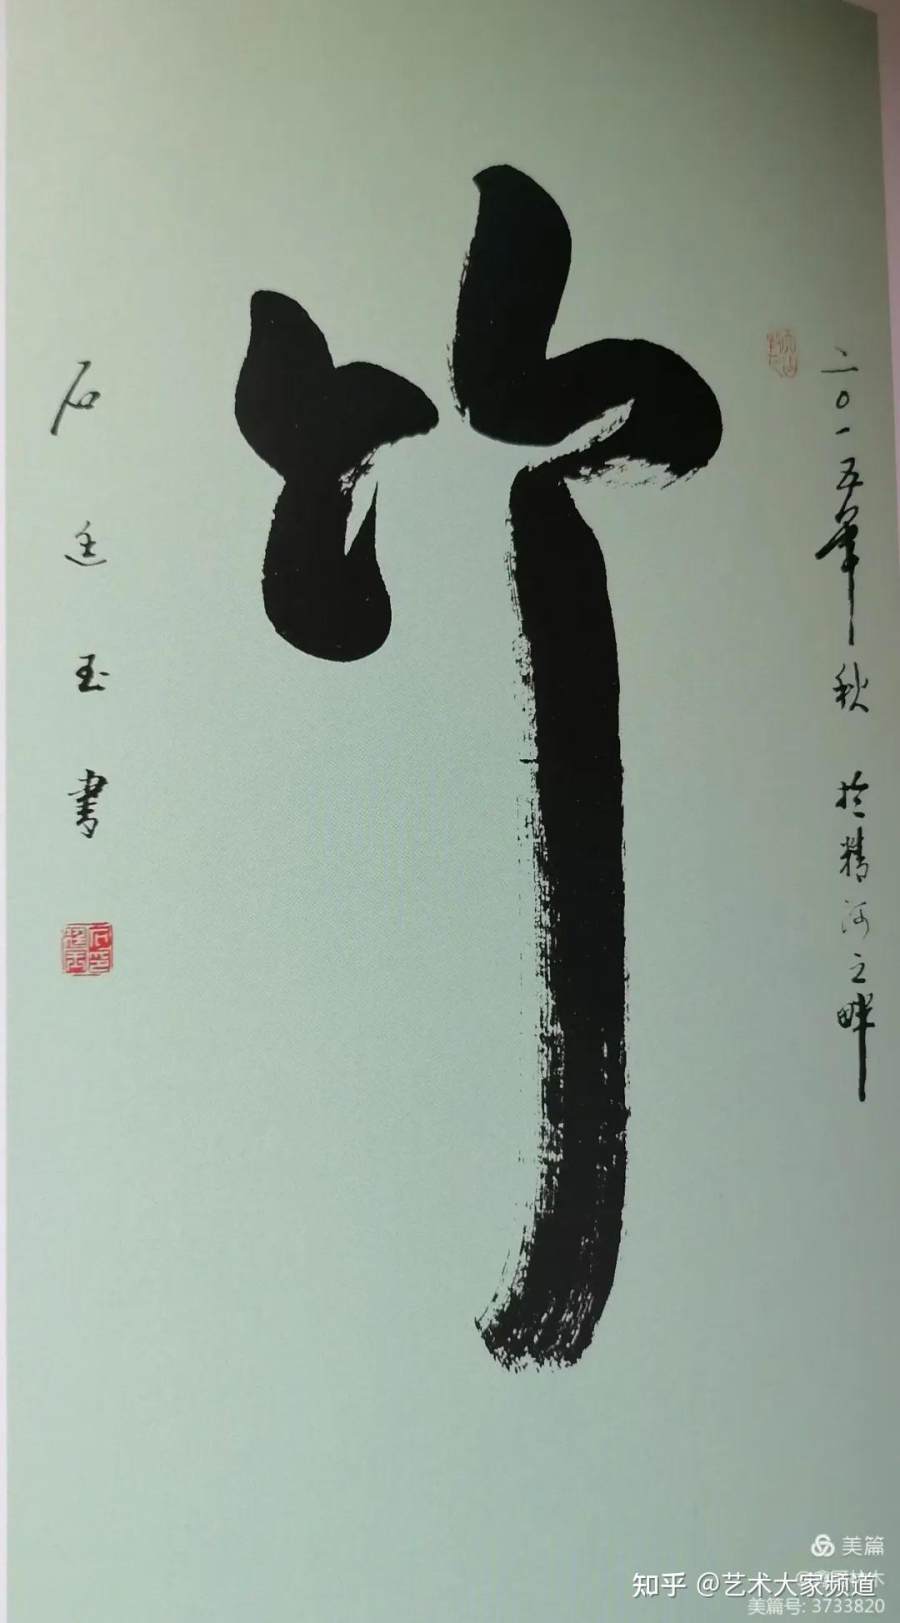 二0一五年秋 於精河之畔
竹
石廷玉書
美篇
知乎 @艺术大家频道
美篇号: 3733820